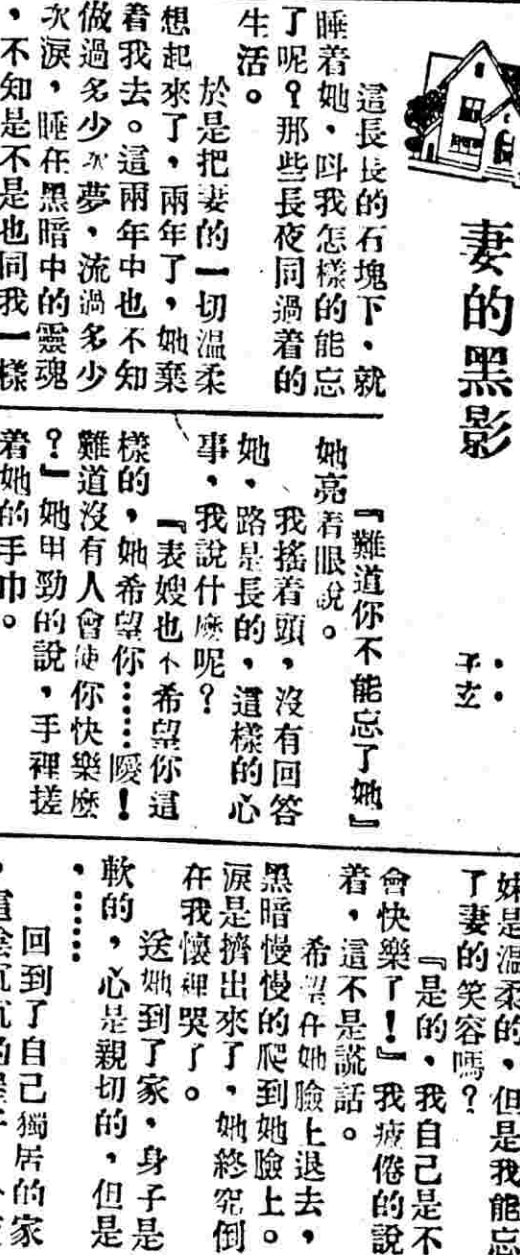 妻的黑影
子玄
這長長的石塊下、就
睡着她、叫我怎樣的能忘
了呢？那些長夜同過着的
生活。
於是把妻的一切溫柔
想起來了，兩年了，她棄
着我去。這兩年中也不知
做過多少次夢，流過多少
次淚，睡在黑暗中的靈魂
，不知是不是也同我一樣
『難道你不能忘了她』
她亮着眼說。
我搖着頭，沒有回答
她、路是長的，這樣的心
事，我說什麼呢？
『表嫂也不希望你這
樣的，她希望你……噯！
難道沒有人會使你快樂麼
？』她用勁的說，手裡搓
着她的手巾。
妹是溫柔的，但是我能忘
了妻的笑容嗎？
『是的，我自己是不
會快樂了！』我疲倦的說
着，這不是謊話。
希望在她臉上退去，
黑暗慢慢的爬到她臉上。
淚是擠出來了，她終究倒
在我懷裡哭了。
送她到了家，身子是
軟的，心是親切的，但是
，……
回到了自己獨居的家